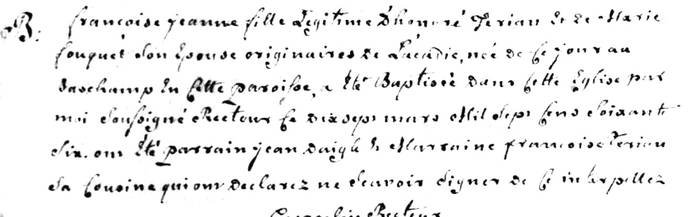 B: françoise jeanne fille Legitime d'honoré Terian Et de Marie
fouquet Son Epouse originaires de Lacadie, née de Ce jour au
en Cette paroisse, a Eté Baptisée dans Cette Eglise par
moi Soussigné Recteur Ce dix sept mars Mil Sept Cens Soixante
Six. ont Eté parrain jean daigle & Marraine francoise Terian
Sa Cousine qui ont declarez ne Scavoir Signer de Ce interpellez
Recteur